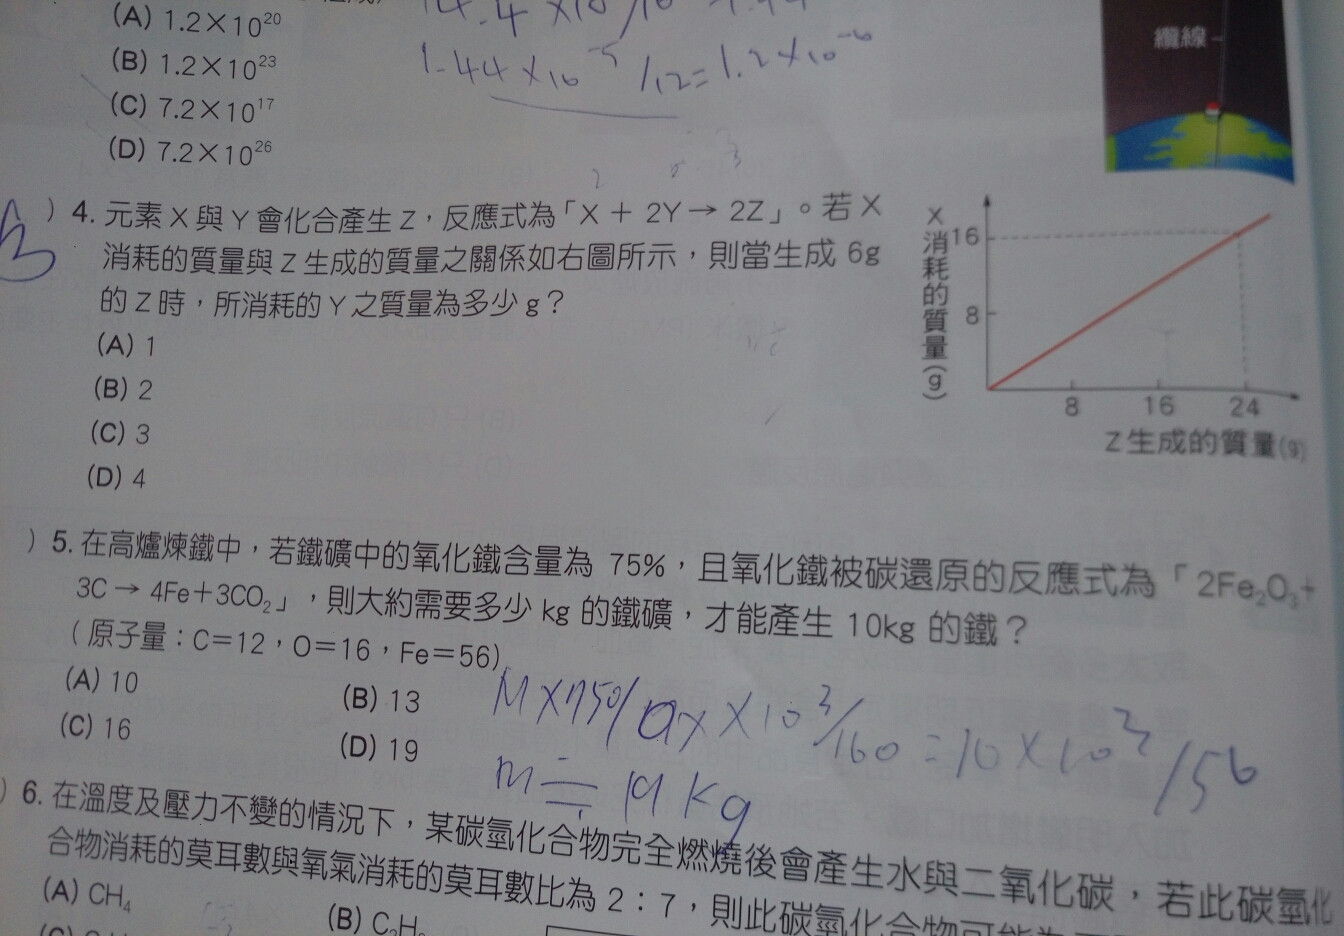 14.4×10
(A) 1.2×10²⁰
1.44×10⁻⁵/12=1.2×10⁻⁶
(B) 1.2×10²³
(C) 7.2×10¹⁷
(D) 7.2×10²⁶
纜線
) 4. 元素 X 與 Y 會化合產生 Z，反應式為「X + 2Y→ 2Z」。若 X
消耗的質量與 Z 生成的質量之關係如右圖所示，則當生成 6g
的 Z 時，所消耗的 Y 之質量為多少 g？
(A) 1
(B) 2
(C) 3
(D) 4
X消耗的質量(g)
16
8
8 16 24
Z 生成的質量(g)
) 5. 在高爐煉鐵中，若鐵礦中的氧化鐵含量為 75%，且氧化鐵被碳還原的反應式為「2Fe₂O₃+
3C → 4Fe+3CO₂」，則大約需要多少 kg 的鐵礦，才能產生 10kg 的鐵？
(原子量：C=12，O=16，Fe=56)
(A) 10 (B) 13
(C) 16 (D) 19
=10×10³/56
m≒19kg
) 6. 在溫度及壓力不變的情況下，某碳氫化合物完全燃燒後會產生水與二氧化碳，若此碳氫化
合物消耗的莫耳數與氧氣消耗的莫耳數比為 2：7，則此碳氫化合物可能為
(A) CH₄ (B)